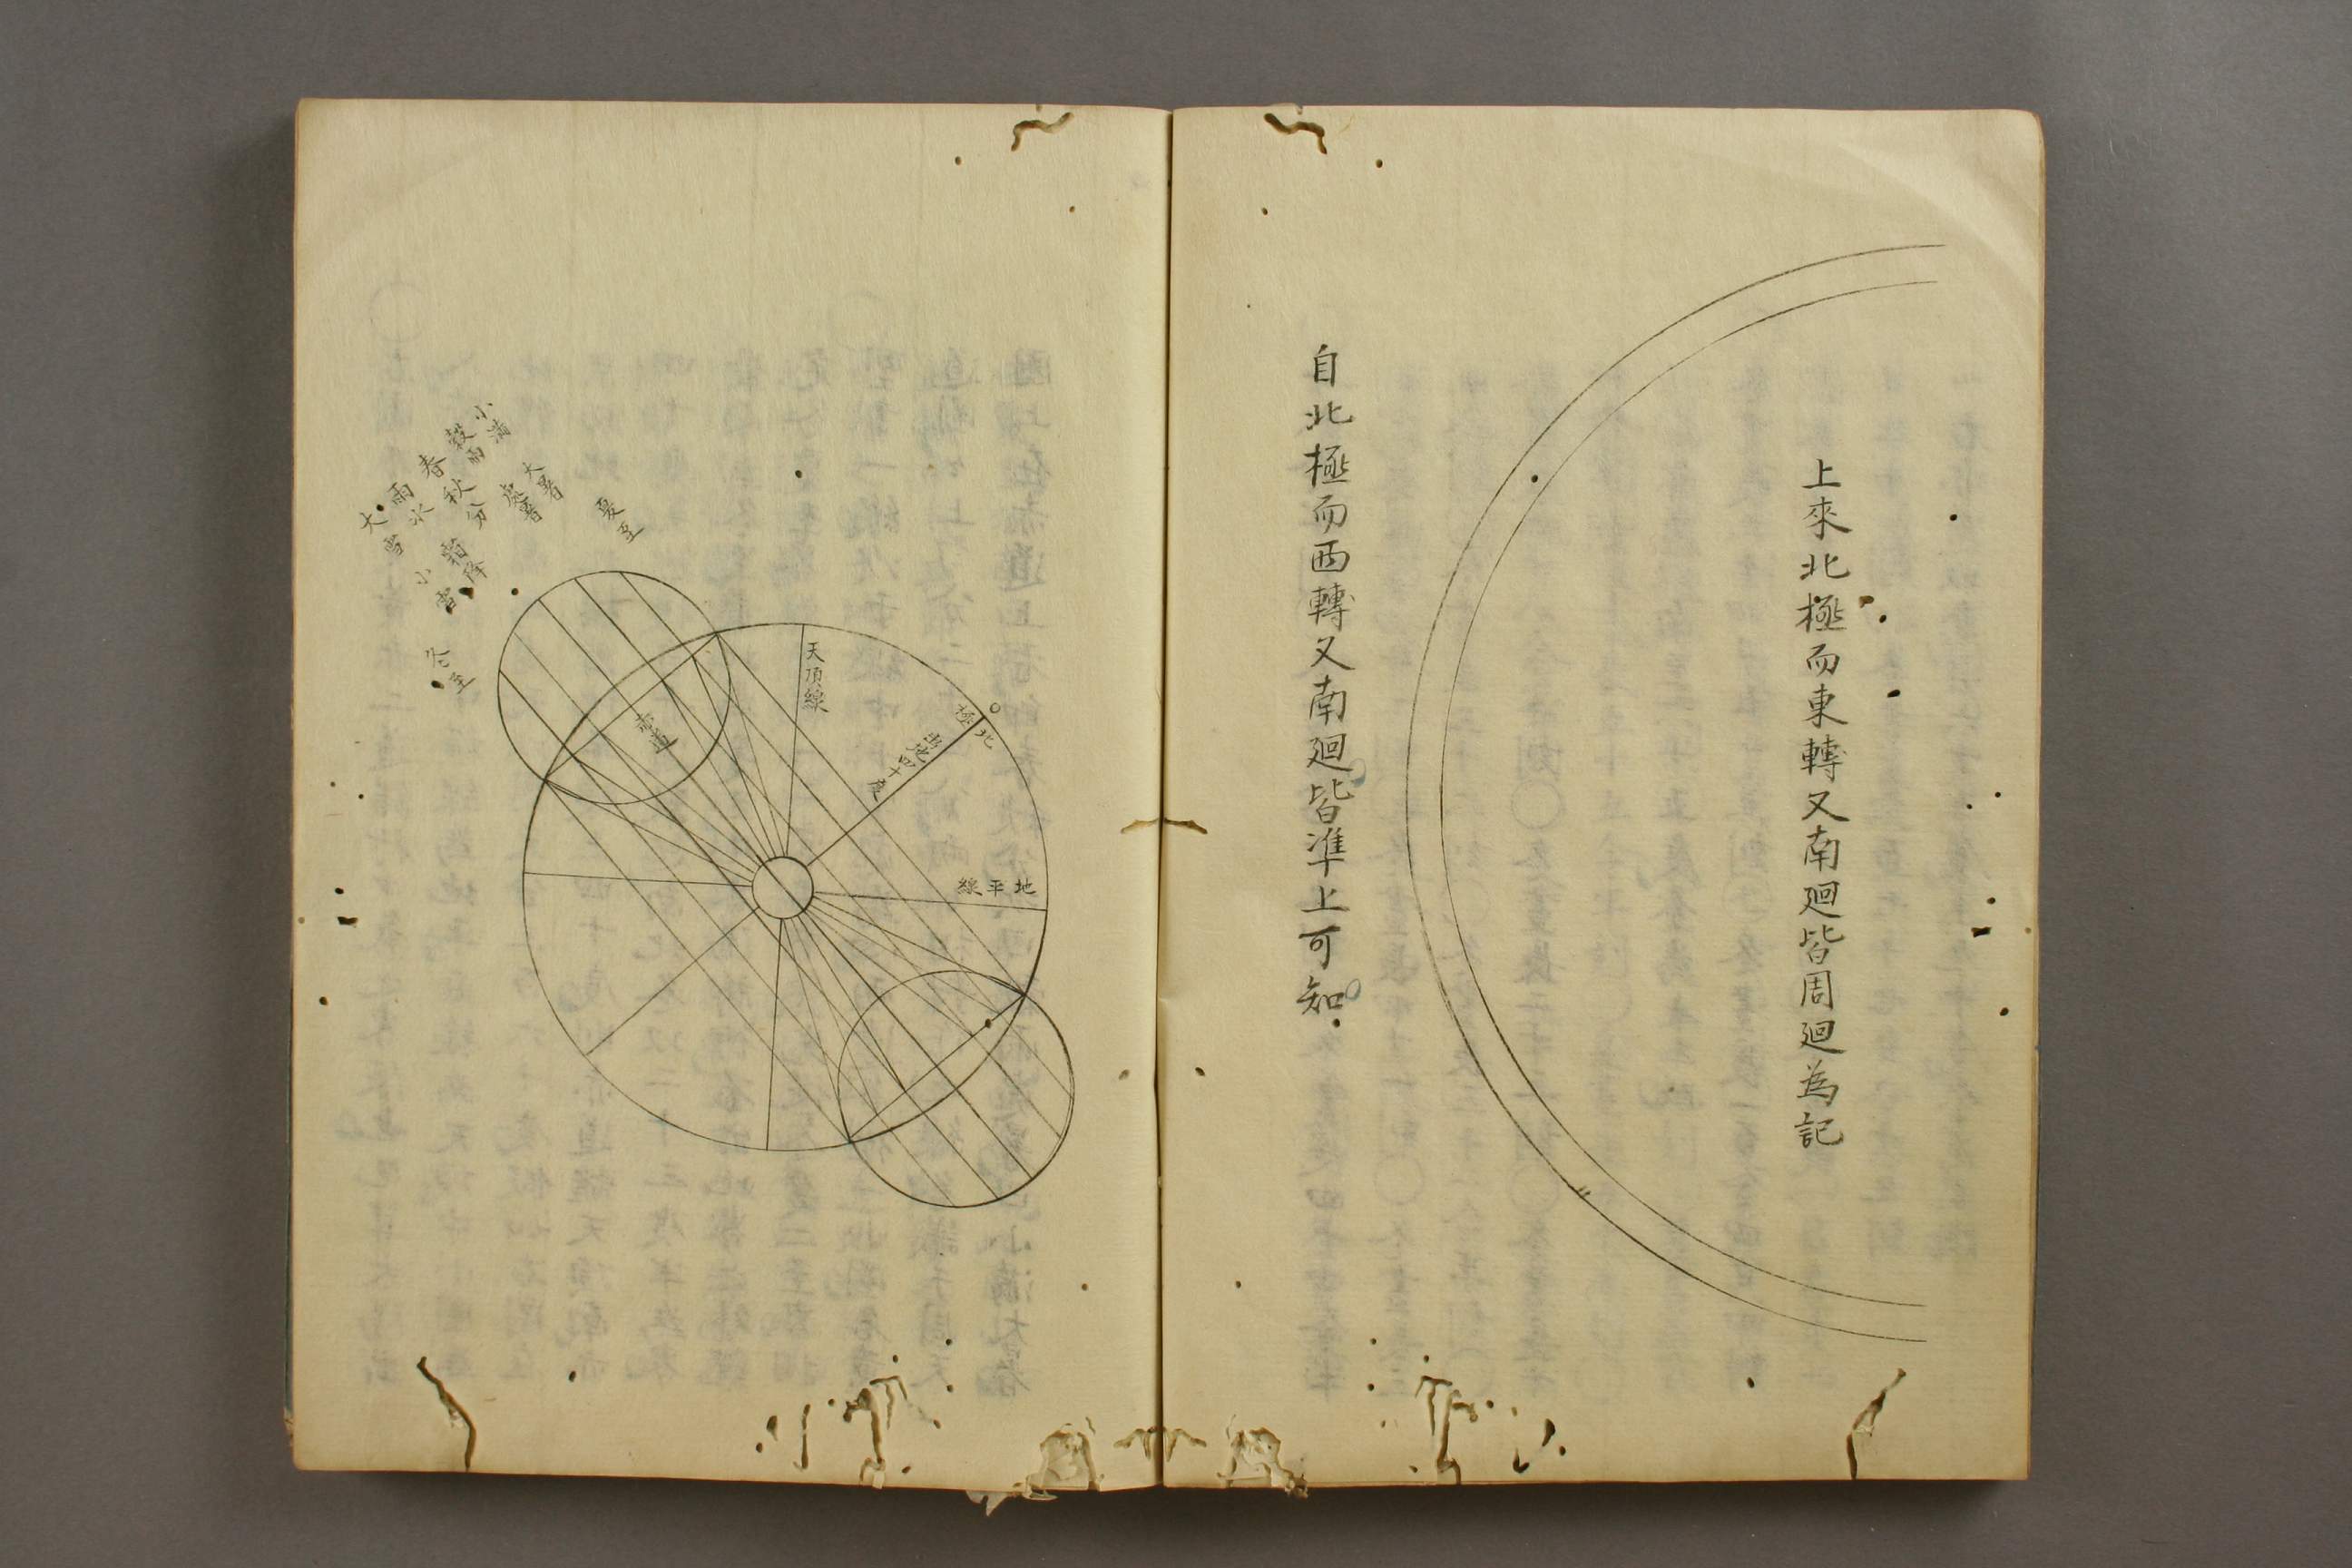 上來北極而東轉又南廻皆周廻為記
自北極而西轉又南廻皆準上可知
北極
出地四十度
地平線
天頂線
赤道
夏至
小滿
大暑
穀雨
處暑
春秋分
雨水
霜降
大雪
小雪
冬至